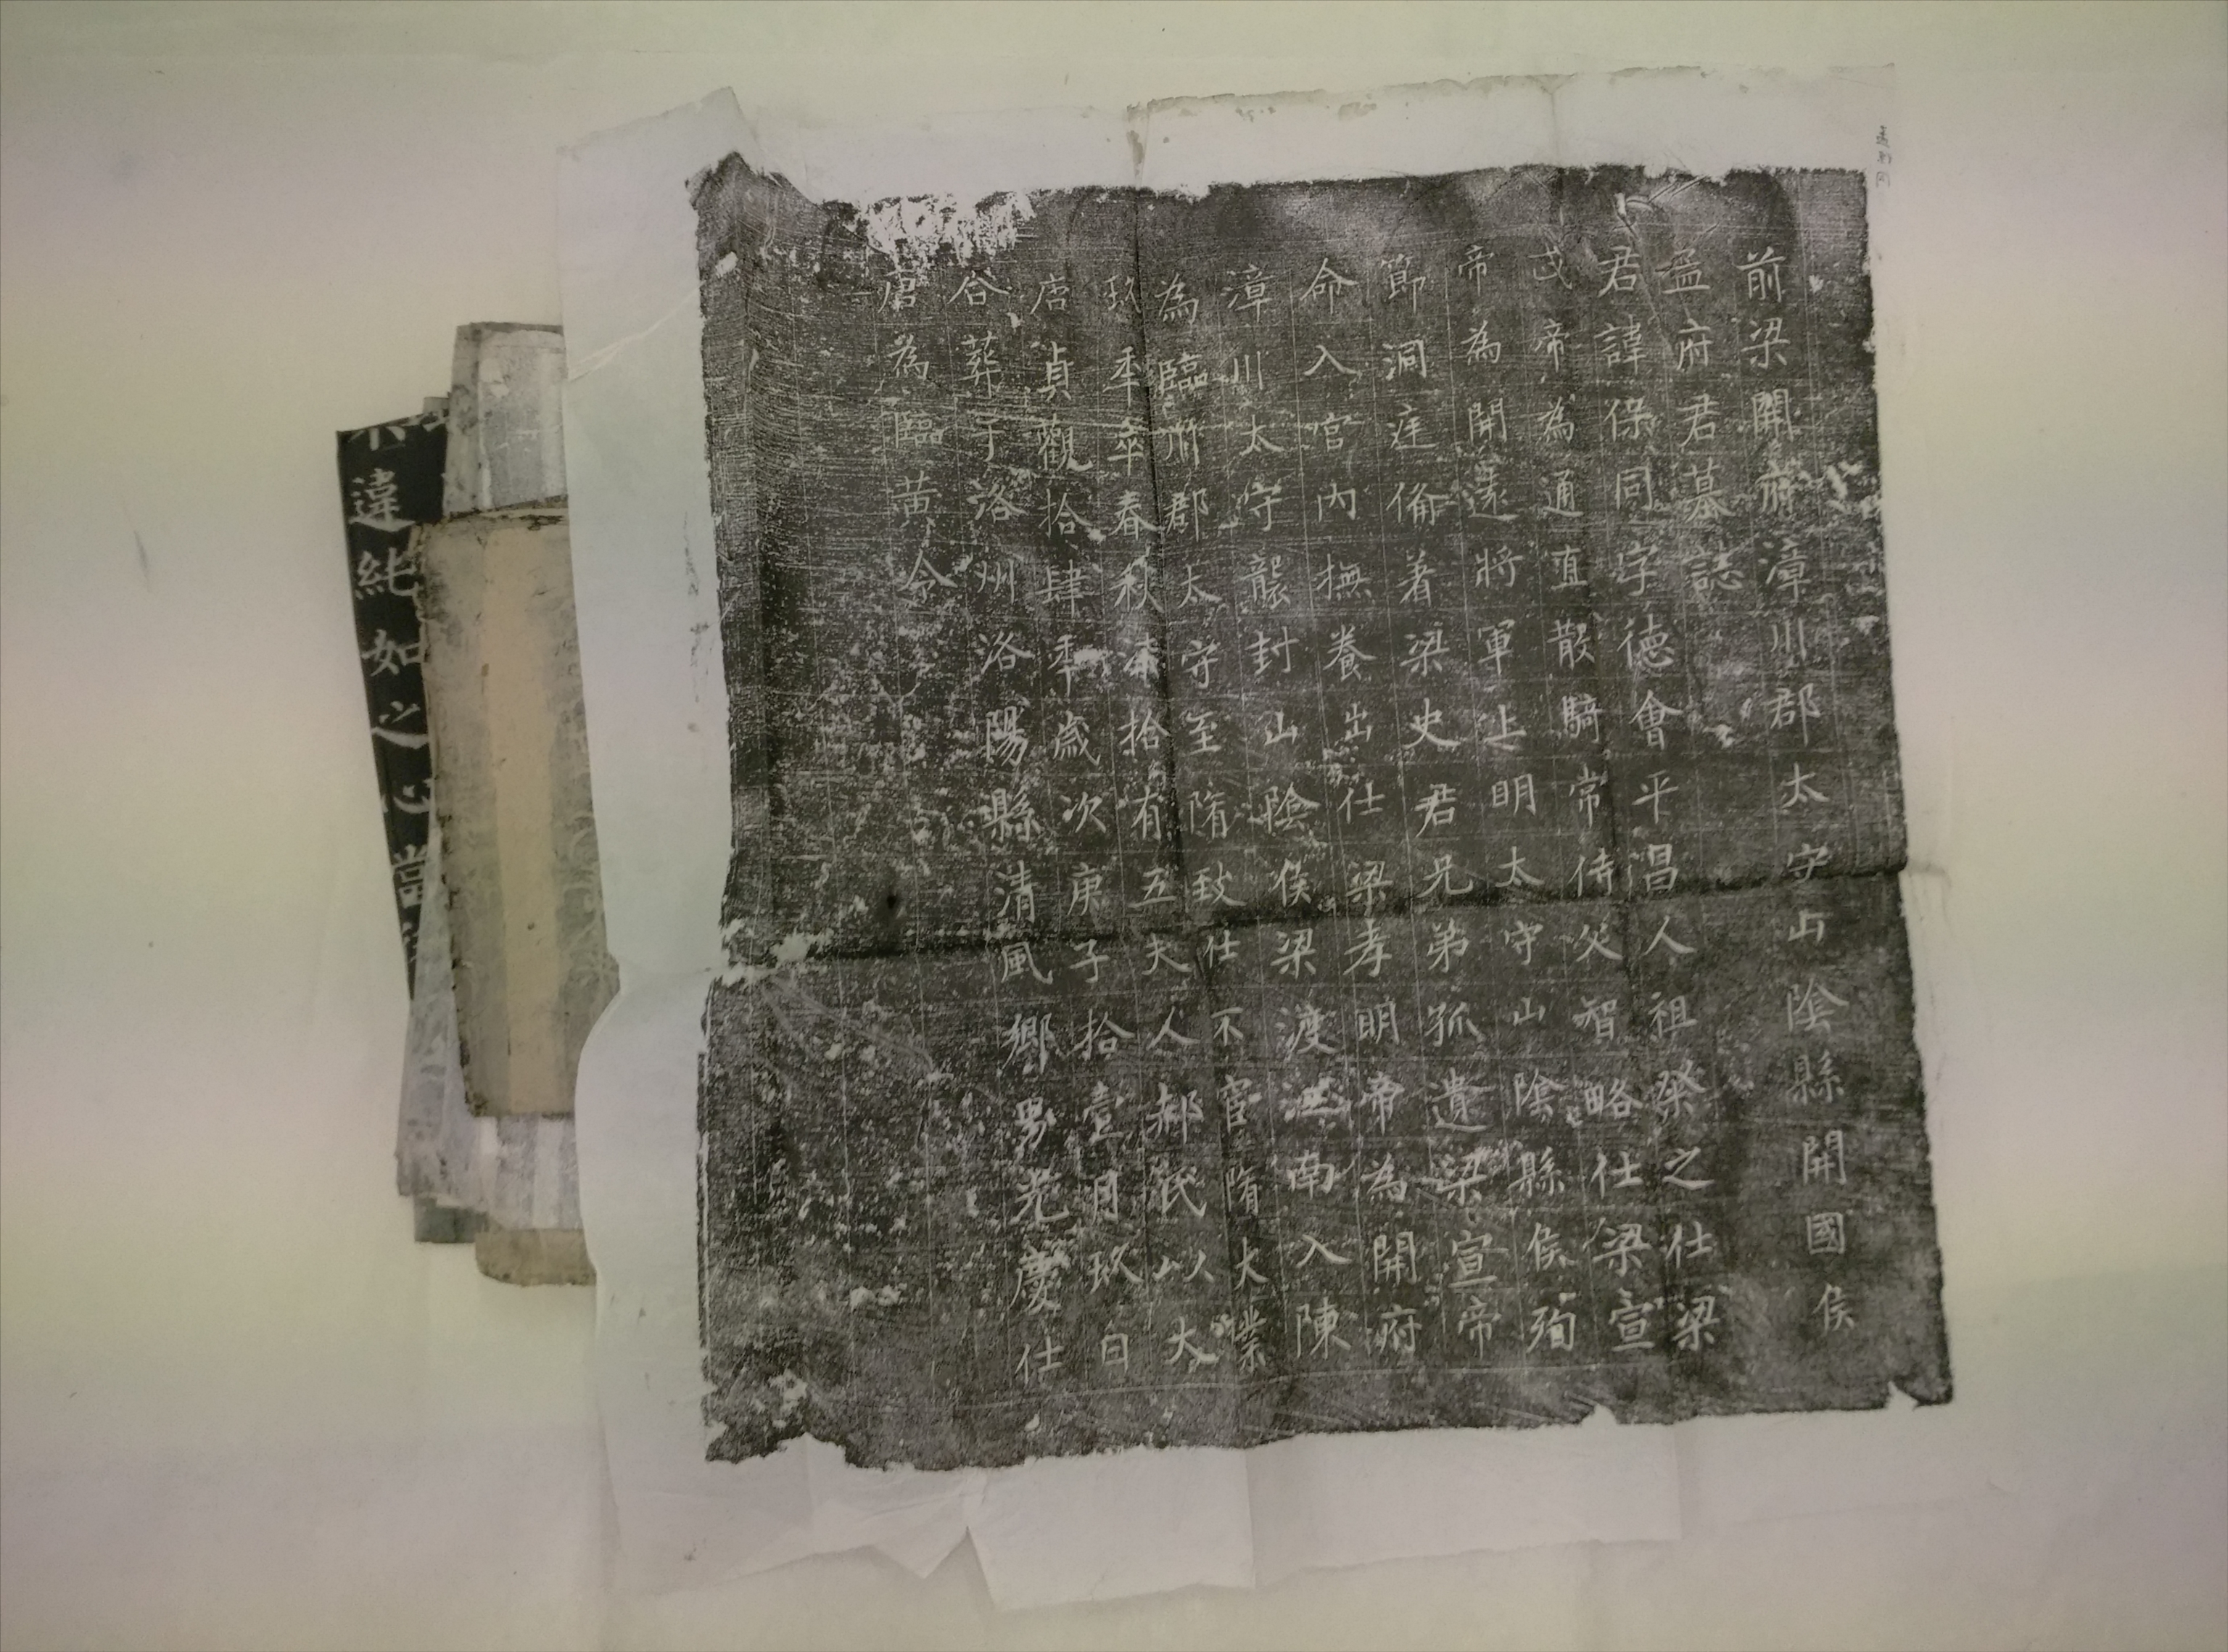 前梁開府漳川郡太守山陰縣開國侯
孟府君墓誌
君諱保同字德會平昌人祖粲之仕梁
武帝為通直散騎常侍父智略仕梁宣
帝為開遠將軍上明太守山陰縣侯殉
節洞庭備著梁史君兄弟孤遺梁宣帝
命入宮內撫養出仕梁孝明帝為開府
漳川太守襲封山陰侯梁渡江南入陳
為臨川郡太守至隋致仕不宦隋大業
玖年卒春秋伍拾有五夫人郝氏以大
唐貞觀拾肆年歲次庚子拾壹月玖日
合葬于洛州洛陽縣清風鄉男光慶仕
唐為臨黃令
違純如之心當